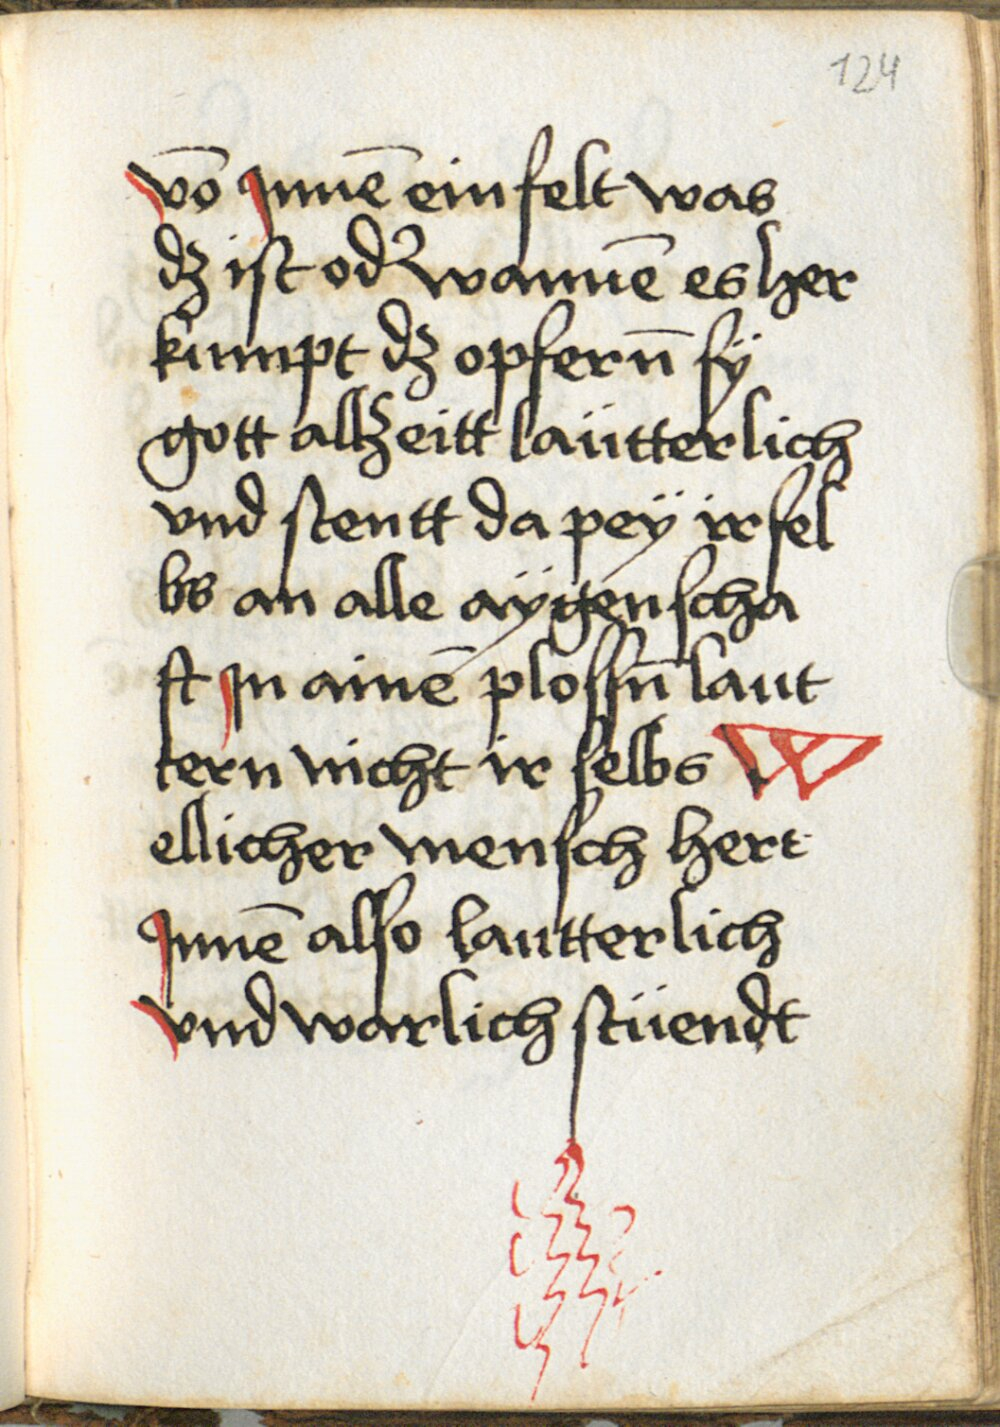 124
vō Jnnē ein felt was
dꝫ ist od̾ wannē es her
kumpt dꝫ opfern̄ sÿ
gott altzeitt laütterlich
vnd stentt da peÿ ir sel
bs an alle aÿgenscha
ft Jn ainē plossn̄ laut
tern nicht ir selbs W
ellicher mensch hert
Jnnē also lautterlich
vnd warlich stüendt